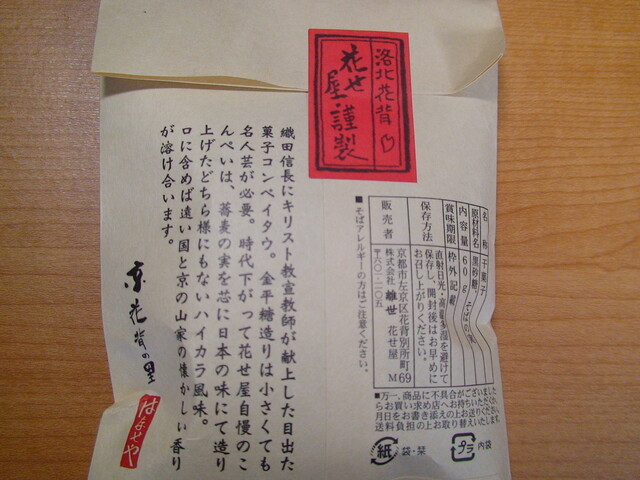 洛北花背
花せ屋謹製
名称 干菓子
原材料名 黒砂糖 そばの実
内容量 60g
賞味期限 枠外記載
保存方法 直射日光・高温多湿を避けて
保存し、開封後はお早めに
お召し上がりください。
販売者 株式会社 離世 花せ屋 M
京都市左京区花背別所町69
〒六〇一-一一〇五
■そばアレルギーの方はご注意ください。
■万一、商品に不具合がございました
紙 袋・栞
プラ 内袋
織田信長にキリスト教宣教師が献上した目出た
菓子コンペイタウ。金平糖造りは小さくても
名人芸が必要。時代下がって花せ屋自慢のこ
んぺいは、蕎麦の実を芯に日本の味にて造り
上げたどちら様にもないハイカラ風味。
口に含めば遠い国と京の山家の懐かしい香り
が溶け合います。
京花背の里
はなせや